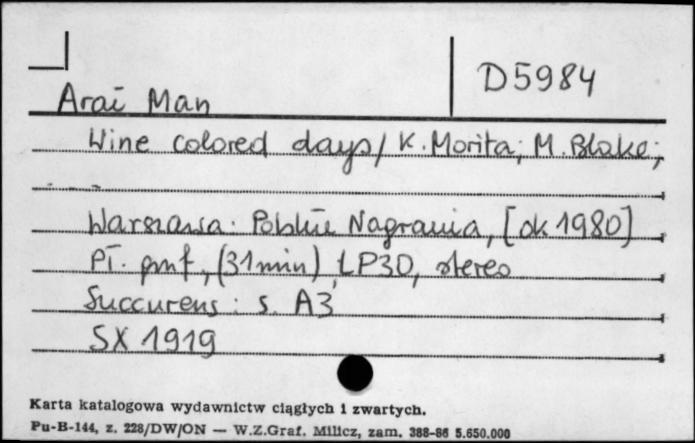 D5984
Arai Man
Wine colored days / K. Morita; M. Blake;
. . -
Warszawa: Polskie Nagrania, [ok 1980]
Pł. gmf., (31 min), LP30, stereo
Succurens: s. A3
SX 1919
Karta katalogowa wydawnictw ciągłych i zwartych.
Pu-B-144, z. 228/DW/ON — W.Z.Graf. Milicz, zam. 388-86 5.650.000